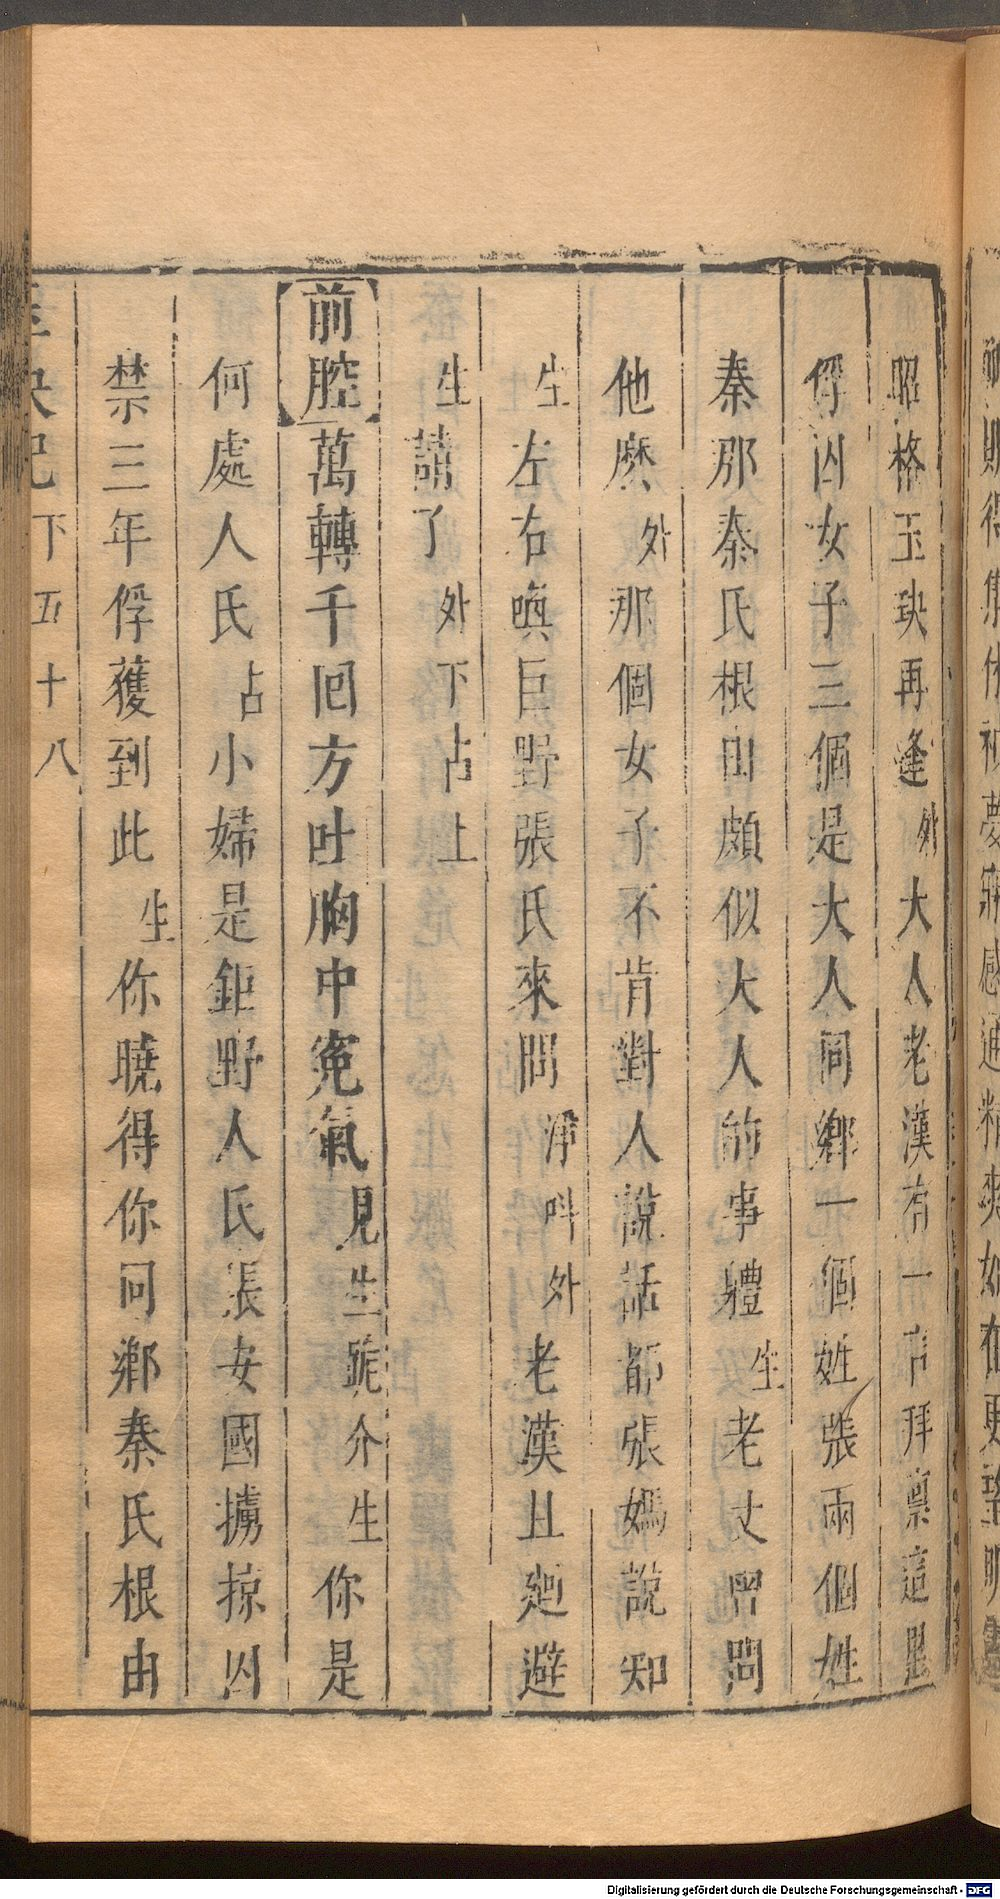 昭格玉玦再逢外大人老漢有一言拜禀這里
俘囚女子三個是大人同鄉一個姓張兩個姓
秦那秦氏根由頗似大人的事體生老丈曾問
他麽外那個女子不肯對人說話都張媽說知
生左右喚巨野張氏來問淨呌外老漢且廻避
生請了外下占上
前腔萬轉千回方吐胸中寃氣見生跪介生你是
何處人氏占小婦是鉅野人氏張安國擄掠囚
禁三年俘獲到此生你曉得你同鄉秦氏根由
玉玦記下五十八
Digitalisierung gefördert durch die Deutsche Forschungsgemeinschaft - DFG